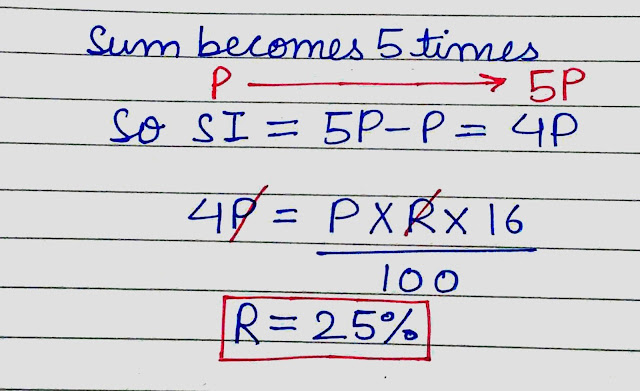 Sum becomes 5 times
P → 5P
So SI = 5P-P = 4P
4P = P X R X 16
100
R = 25%